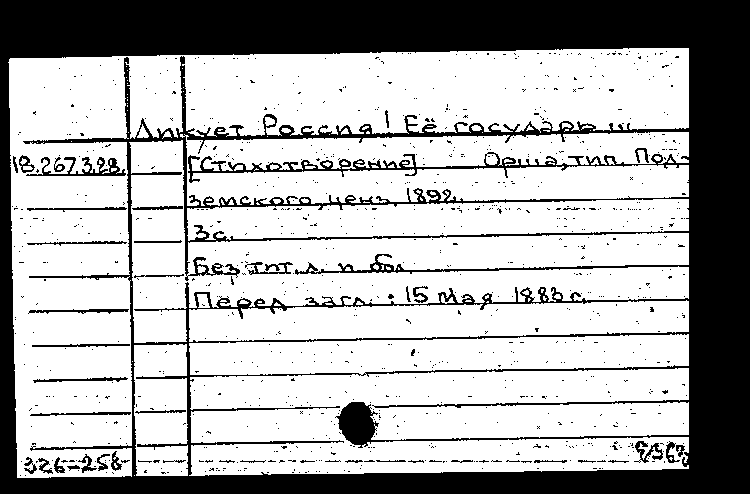 Ликует Россия! Её государь...
18.267.3.28. [Стихотворение]. Орша, тип. Под-
земского, ценз. 1892.
3с.
Без тит. л. и обл.
Перед загл.: 15 мая 1883 г.
326-258